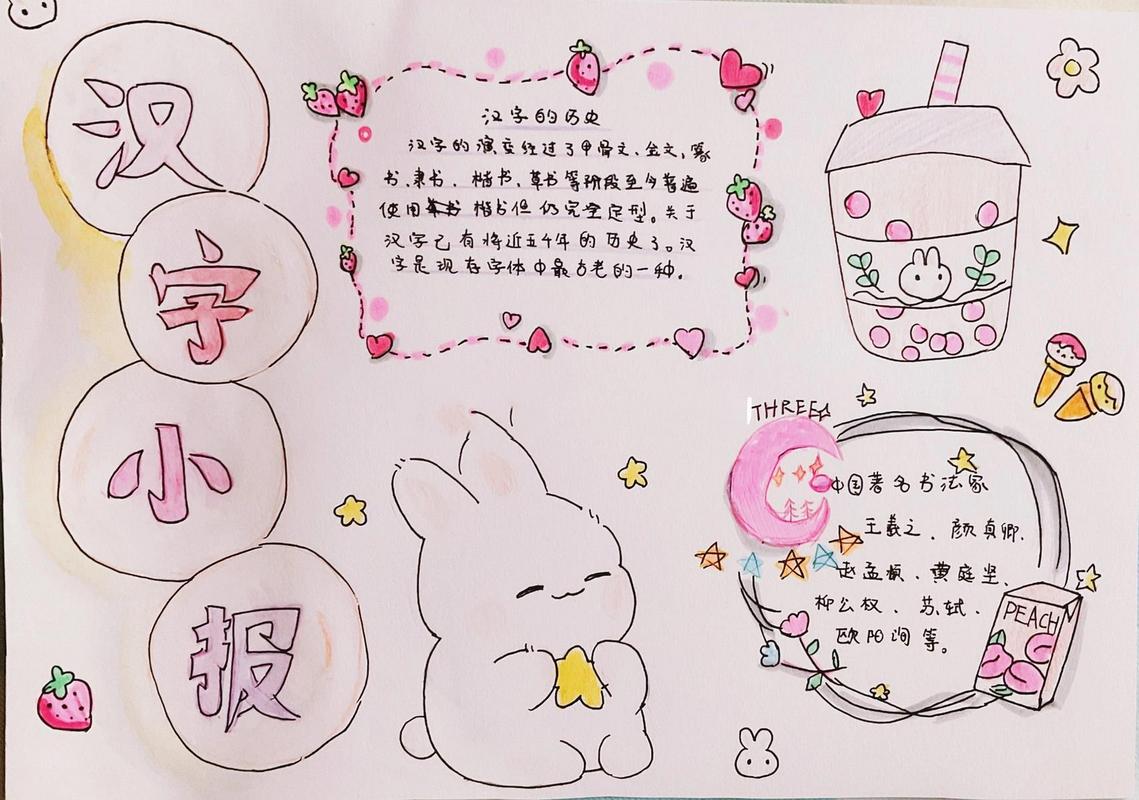 汉
字
小
报
汉字的历史
汉字的演变经过了甲骨文、金文、篆
书、隶书、楷书、草书等阶段至今普遍
使用楷书但仍完全定型。关于
汉字已有将近五千年的历史了。汉
字是现在字体中最古老的一种。
THREE
中国著名书法家
王羲之、颜真卿、
赵孟頫、黄庭坚、
柳公权、苏轼、
欧阳询等。
PEACH